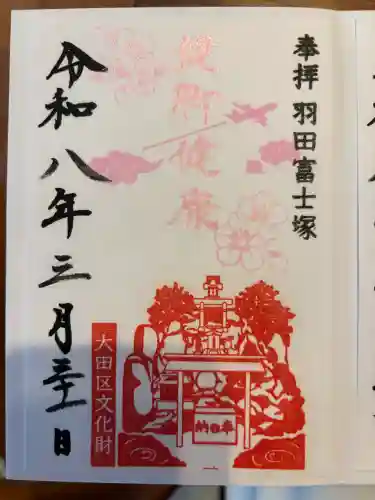 奉拝 羽田富士塚
健脚健康
令和八年三月三十一日
大田区文化財
奉納